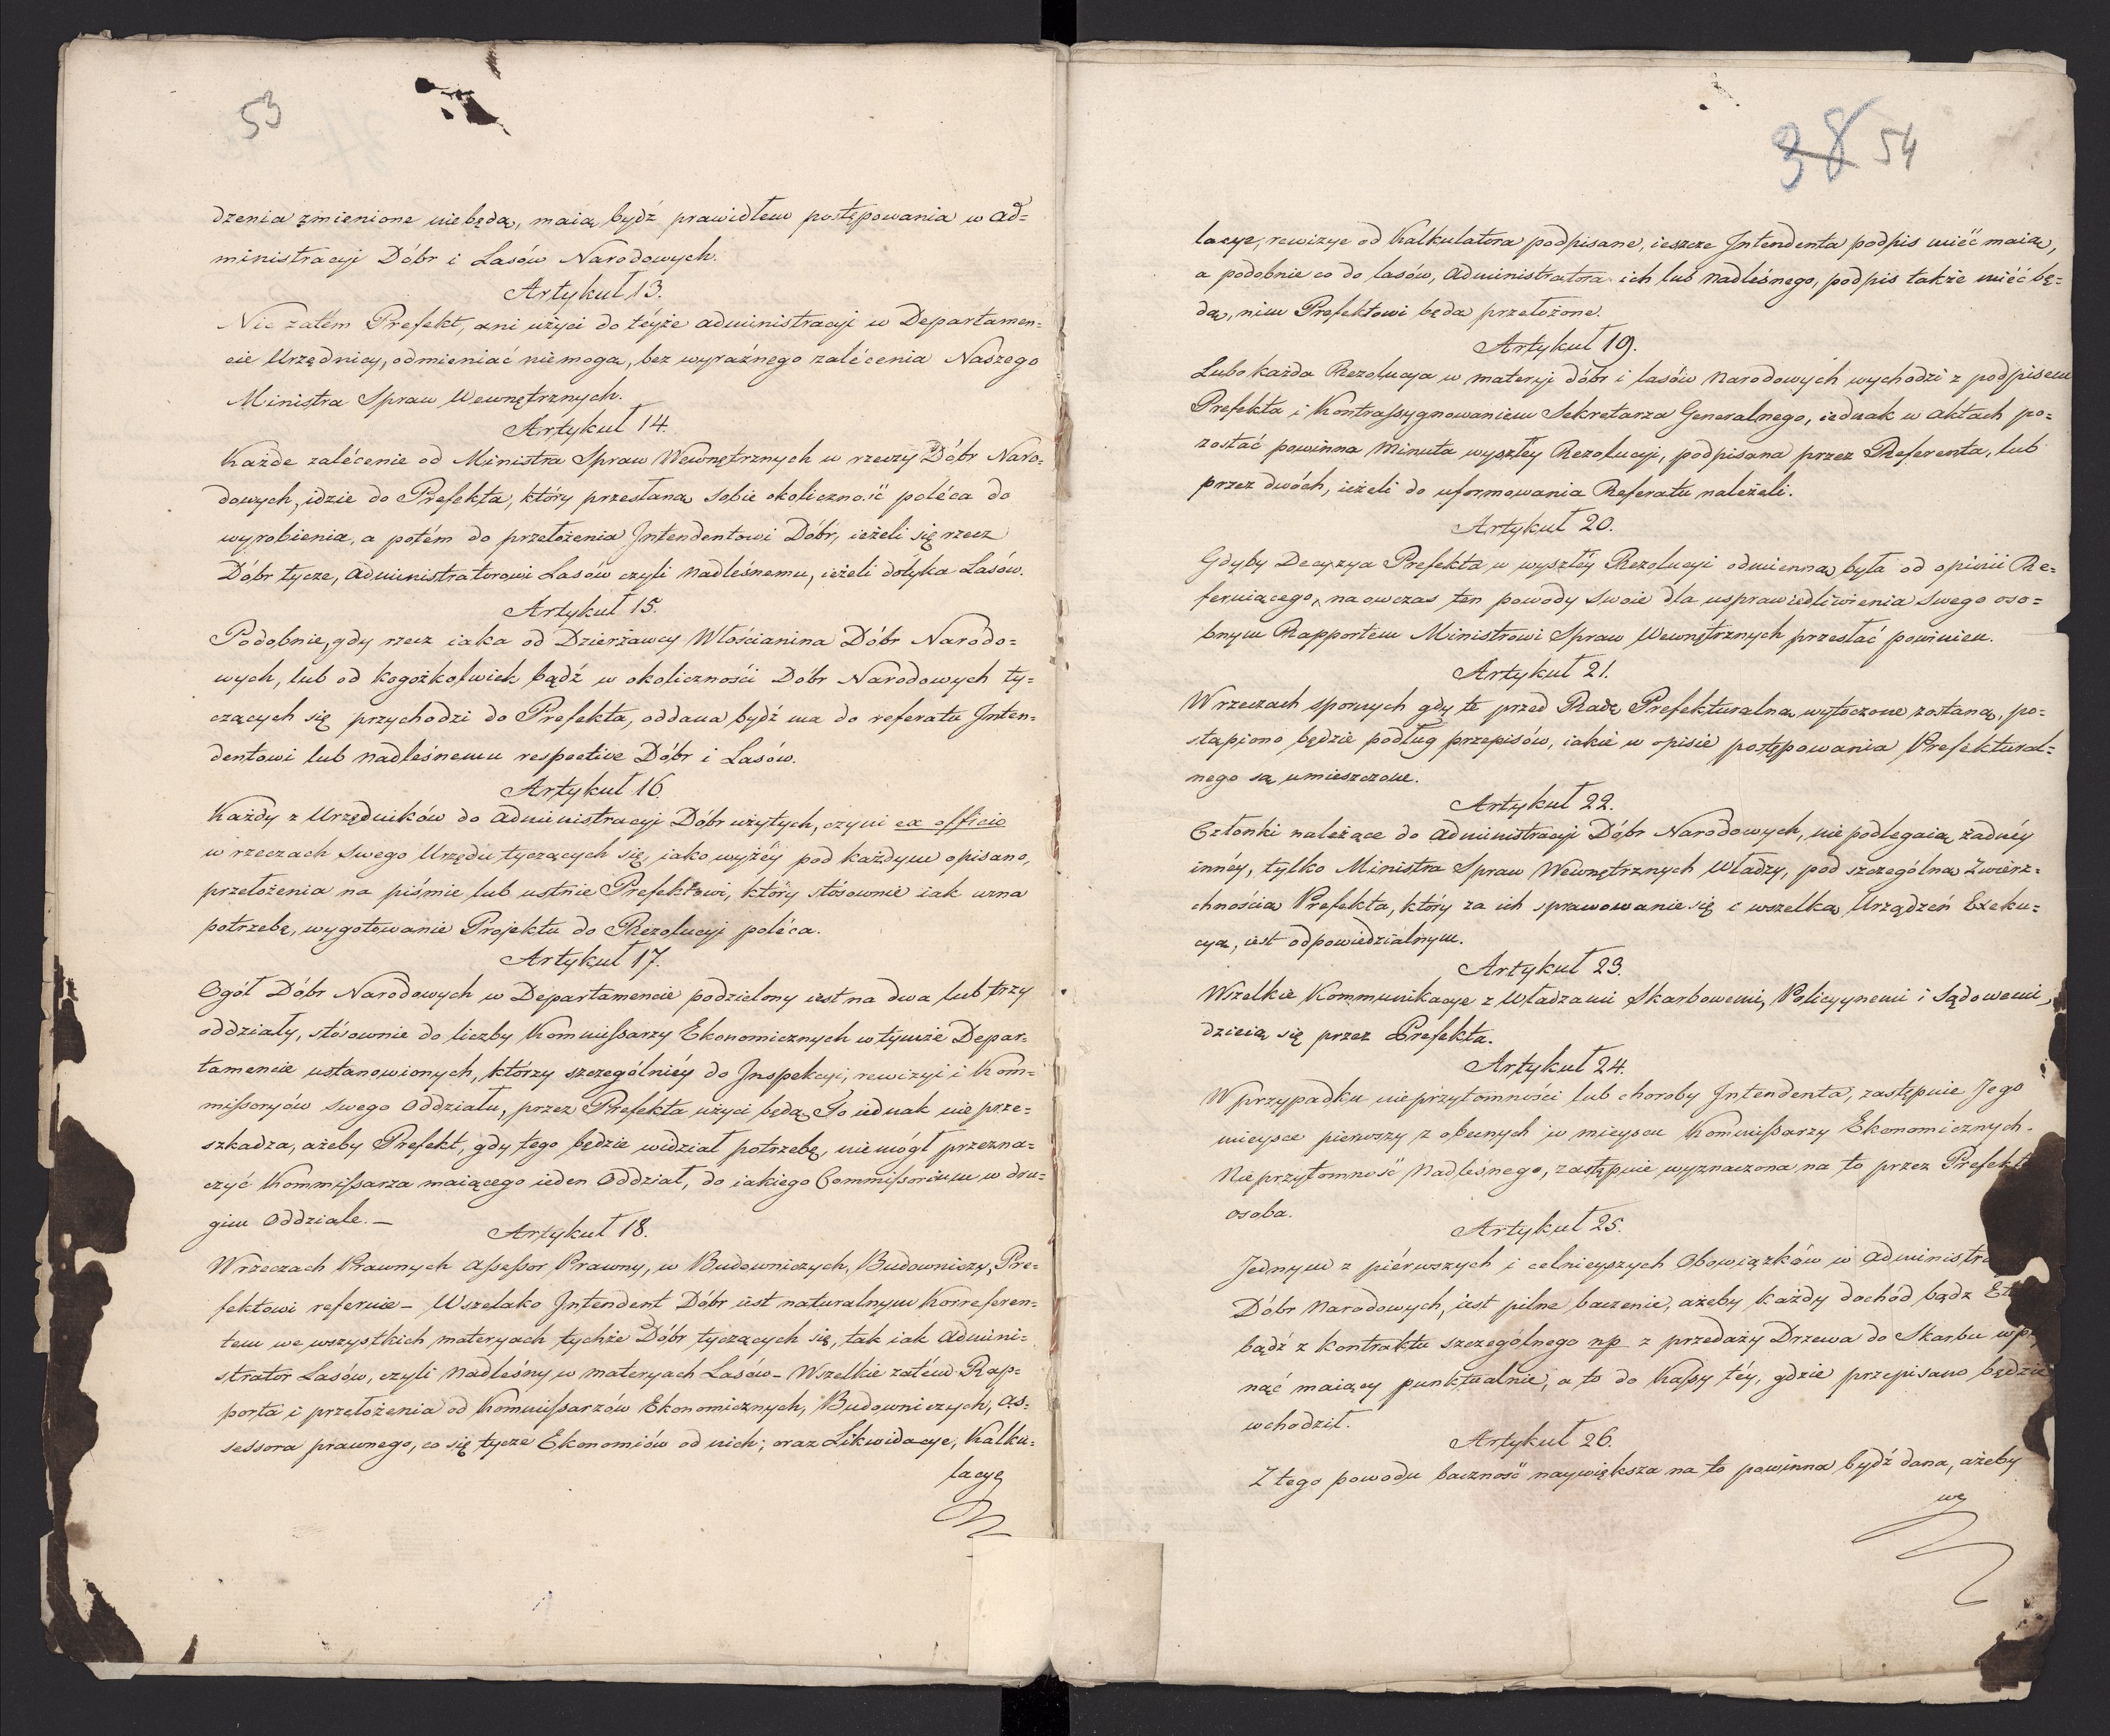 53
dzenia zmienione niebędą, maią bydź prawidłem postępowania w Ad=
ministracyi Dóbr i Lasów Narodowych.
Artykuł 13.
Nic zatém Prefekt, ani użyci do téyże administracyi w Departamen=
cie Urzędnicy, odmieniać niemogą, bez wyraźnego zalécenia Naszego
Ministra Spraw Wewnętrznych.
Artykuł 14.
Każde zalécenie od Ministra Spraw Wewnętrznych w rzeczy Dóbr Naro=
dowych, idzie do Prefekta, który przesłaną sobie okoliczność poléca do
wyrobienia, a potém do przełożenia Intendentowi Dóbr, ieżeli się rzecz
Dóbr tycze, Administratorowi Lasów czyli Nadleśnemu, ieżeli dotyka Lasów.
Artykuł 15.
Podobnie, gdy rzecz iaka od Dzierżawcy Włościanina Dóbr Narodo=
wych, lub od kogożkolwiek bądź w okoliczności Dóbr Narodowych ty=
czących się przychodzi do Prefekta, oddana bydź ma do referatu Inten=
dentowi lub nadleśnemu respective Dóbr i Lasów.
Artykuł 16.
Każdy z Urzędników do Administracyi Dóbr użytych, czyni ex officio
w rzeczach swego Urzędu tyczących się, iako wyżéy pod każdym opisano,
przełożenia na piśmie lub ustnie Prefektowi, który stósownie iak uzna
potrzebę, wygotowanie Projektu do Rezolucyi poléca.
Artykuł 17.
Ogół Dóbr Narodowych w Departamencie podzielony iest na dwa lub trzy
oddziały, stósownie do liczby Kommißarzy Ekonomicznych w tymże Depar=
tamencie ustanowionych, którzy szczególniéy do Inspekcyi, rewizyi i Kom=
mißoryów swego Oddziału, przez Prefekta użyci będą. To iednak nie prze=
szkadza, ażeby Prefekt, gdy tego będzie widział potrzebę, niemógł przezna=
czyć Kommißarza maiącego ieden Oddział, do iakiego Commißorium w dru=
gim Oddziale. —
Artykuł 18.
W rzeczach Prawnych Aßeßor Prawny, w Budowniczych, Budowniczy, Pre=
fektowi referuie – Wszelako Intendent Dóbr iest naturalnym Korreferen=
tem we wszystkich materyach tychże Dóbr tyczących się, tak iak Admini=
strator Lasów, czyli Nadleśny w materyach Lasów – Wszelkie zatém Rap=
porta i przełożenia od Kommißarzów Ekonomicznych, Budowniczych, As=
sessora prawnego, co się tycze Ekonomiów od nich; oraz Likwidacye, Kalku=
lacye
38 54
lacye, rewizye od Kalkulatora podpisane, ieszcze Intendenta podpis mieć maią,
a podobnie co do lasów, Administratora ich lub Nadleśnego, podpis także miéć bę=
dą, nim Prefektowi będą przełożone.
Artykuł 19.
Lubo każda Rezolucya w materyi dóbr i lasów Narodowych wychodzi z podpisem
Prefekta i Kontraßygnowaniem Sekretarza Generalnego, iednak w Aktach po=
zostać powinna Minuta wyszłéy Rezolucyi, podpisana przez Referenta, lub
przez dwóch, ieżeli do uformowania Referatu należeli.
Artykuł 20.
Gdyby Decyzya Prefekta w wyszłéy Rezolucyi odmienną była od opinii Re=
feruiącego, naówczas ten powody swoie dla usprawiedliwienia swego oso=
bnym Rapportem Ministrowi Spraw Wewnętrznych przesłać powinien.
Artykuł 21.
W rzeczach spornych gdy te przed Radę Prefekturalną wytoczone zostaną, po=
stąpiono będzie podług przepisów, iakie w opisie postępowania Prefektural=
nego są umieszczone.
Artykuł 22.
Członki należące do Administracyi Dóbr Narodowych, nie podlegaią żadnéy
innéy, tylko Ministra Spraw Wewnętrznych Władzy, pod szczególną Zwierz=
chnością Prefekta, który za ich sprawowanie się i wszelką Urządzeń Exeku=
cyą, iest odpowiedzialnym.
Artykuł 23.
Wszelkie Kommunikacye z Władzami Skarbowemi, Policyynemi i Sądowemi,
dzieią się przez Prefekta.
Artykuł 24.
W przypadku nieprzytomności lub choroby Intendenta, zastępuie Jego
mieysce pierwszy z obecnych w mieyscu Kommißarzy Ekonomicznych.
Nieprzytomność Nadleśnego, zastępuie wyznaczona na to przez Prefekt
osoba.
Artykuł 25.
Jednym z piérwszych i celnieyszych Obowiązków w Administra
Dóbr Narodowych, iest pilne baczenie, ażeby każdy dochód bądź Et
bądź z kontraktu szczególnego np z przedaży Drzewa do Skarbu wpł
nąć maiący punktualnie, a to do Kaßy téy, gdzie przepisano będzie
wchodził.
Artykuł 26.
Z tego powodu baczność naywiększa na to powinna bydź dana, ażeby
we